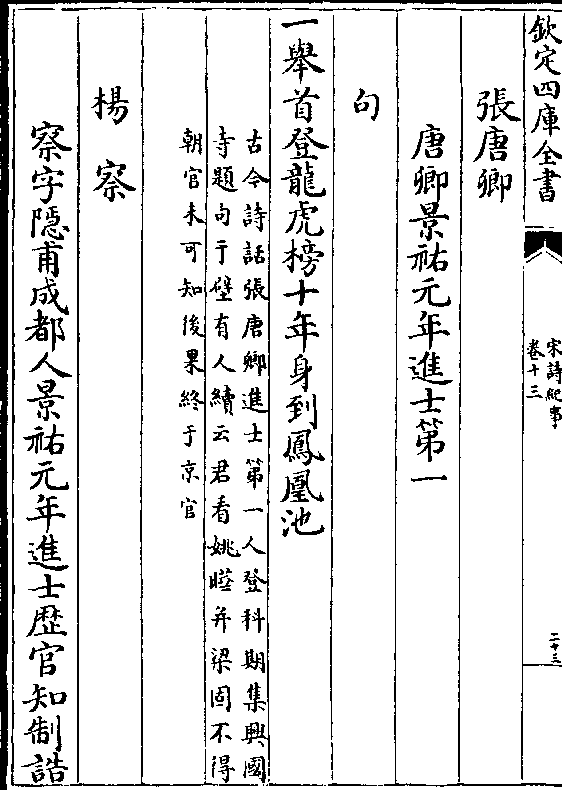 欽定四庫全書
宋詩紀事
卷十三
二十三
張唐卿
唐卿景祐元年進士第一
句
一舉首登龍虎榜十年身到鳳凰池
古今詩話張唐卿進士第一人登科期集興國
寺題句于壁有人續云君看姚曄并梁固不得
朝官未可知後果終于京官
楊察
察字隱甫成都人景祐元年進士歴官知制誥